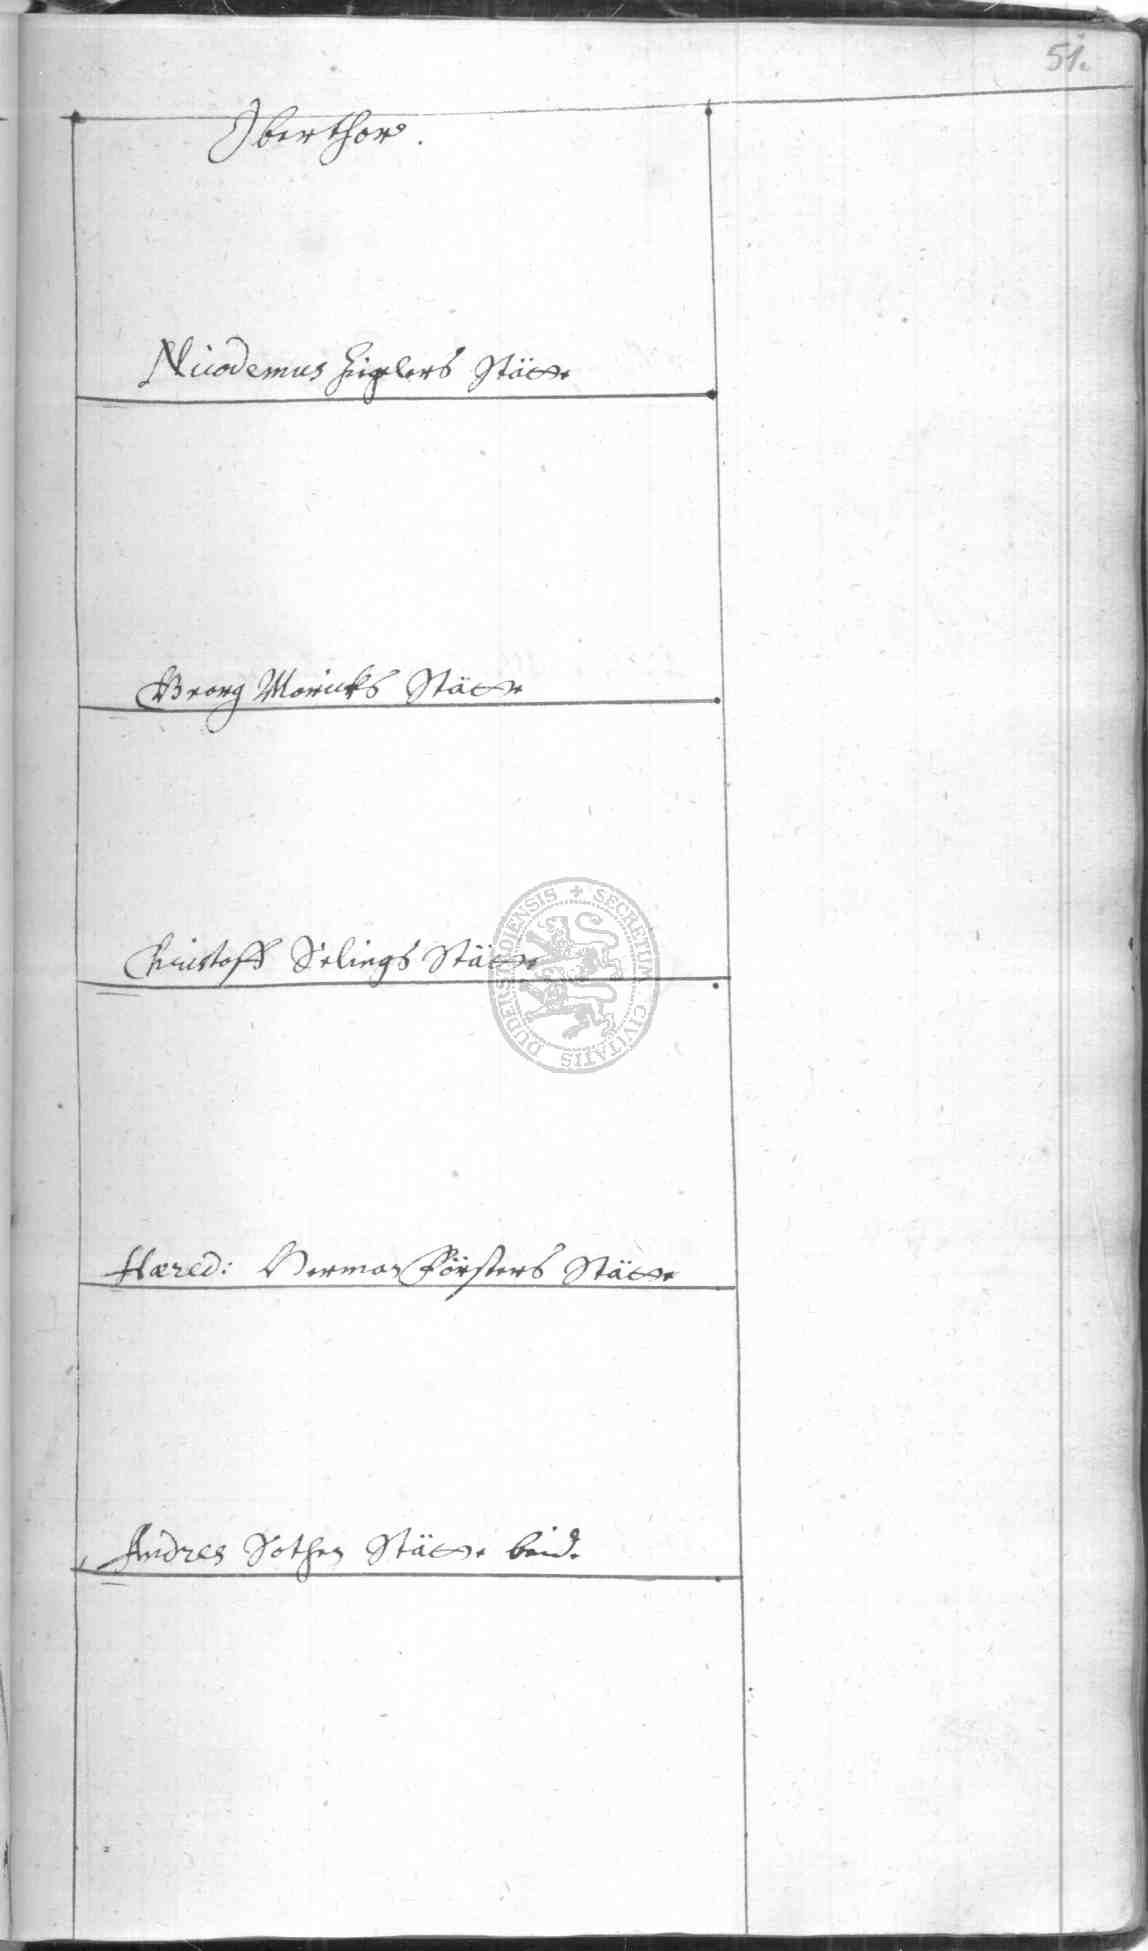 51.
Oberthor.
Nicodemus Zieglers Stätte
Georg Moricks Stätte
Christoff Selings Stätte
Hæred: Herman Försters Stätte
Andres Sothen Stätte beid.
SECRETUM CIVITATIS DUDERSTADIENSIS